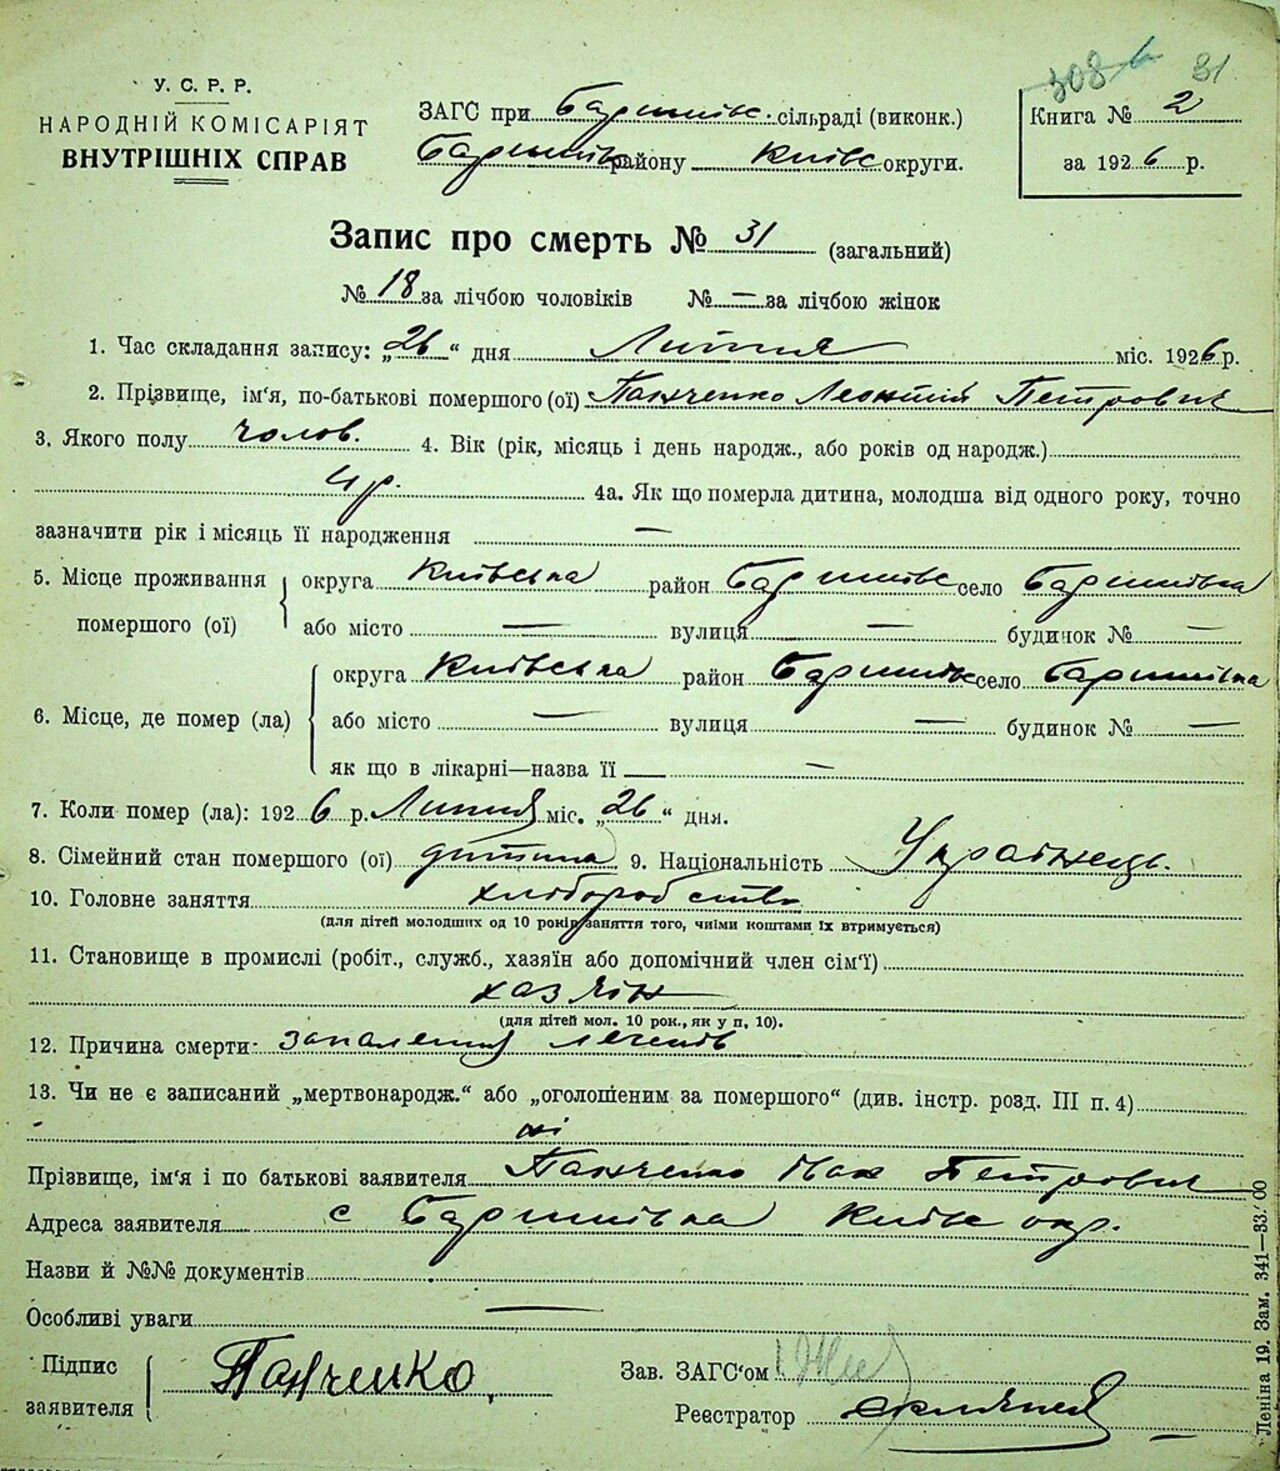 308 в 31
У. С. Р. Р.
НАРОДНІЙ КОМІСАРІЯТ
ВНУТРІШНІХ СПРАВ
ЗАГС при Баришівс. сільраді (виконк.)
Баришівс району Київс округи.
Книга № 2
за 1926 р.
Запис про смерть № 31 (загальний)
№ 18 за лічбою чоловіків № — за лічбою жінок
1. Час складання запису: „26“ дня Липня міс. 1926 р.
2. Прізвище, ім'я, по-батькові помершого (ої) Панченко Леонтій Петрович
3. Якого полу чолов. 4. Вік (рік, місяць і день народж., або років од народж.)
4 р. 4а. Як що померла дитина, молодша від одного року, точно
зазначити рік і місяць її народження —
5. Місце проживання помершого (ої) округа Київська район Баришівс село Баришівка
або місто — вулиця — будинок № —
6. Місце, де помер (ла) округа Київська район Баришівс село Баришівка
або місто — вулиця — будинок № —
як що в лікарні—назва її —
7. Коли помер (ла): 1926 р. Липня міс. „26“ дня.
8. Сімейний стан помершого (ої) дитина 9. Національність Українець.
10. Головне заняття хліборобство
(для дітей молодших од 10 років заняття того, чиїми коштами їх втримується)
11. Становище в промислі (робіт., служб., хазяїн або допомічний член сім'ї)
хазяїн
(для дітей мол. 10 рок., як у п. 10).
12. Причина смерти: запалення легенів
13. Чи не є записаний „мертвонародж.“ або „оголошеним за помершого“ (див. інстр. розд. III п. 4)
ні
Прізвище, ім'я і по батькові заявителя Панченко Іван Петрович
Адреса заявителя с Баришівка Київс окр.
Назви й №№ документів
Особливі уваги —
Підпис заявителя Панченко
Зав. ЗАГС'ом
Реєстратор
Леніна 19. Зам. 341—33.'00